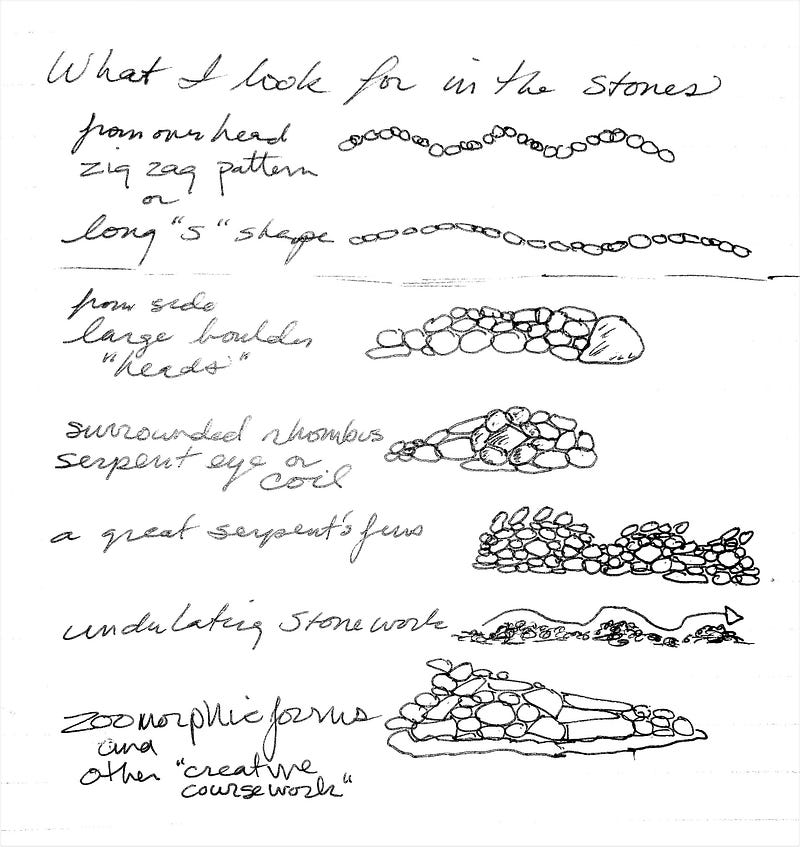 What I look for in the stones
from over head
zig zag pattern
or
long "s" shape
from side
large boulder
"heads"
surrounded rhombus
serpent eye or
coil
a great serpent's fins
undulating stonework
zoomorphic forms
and
other "creative
coursework"